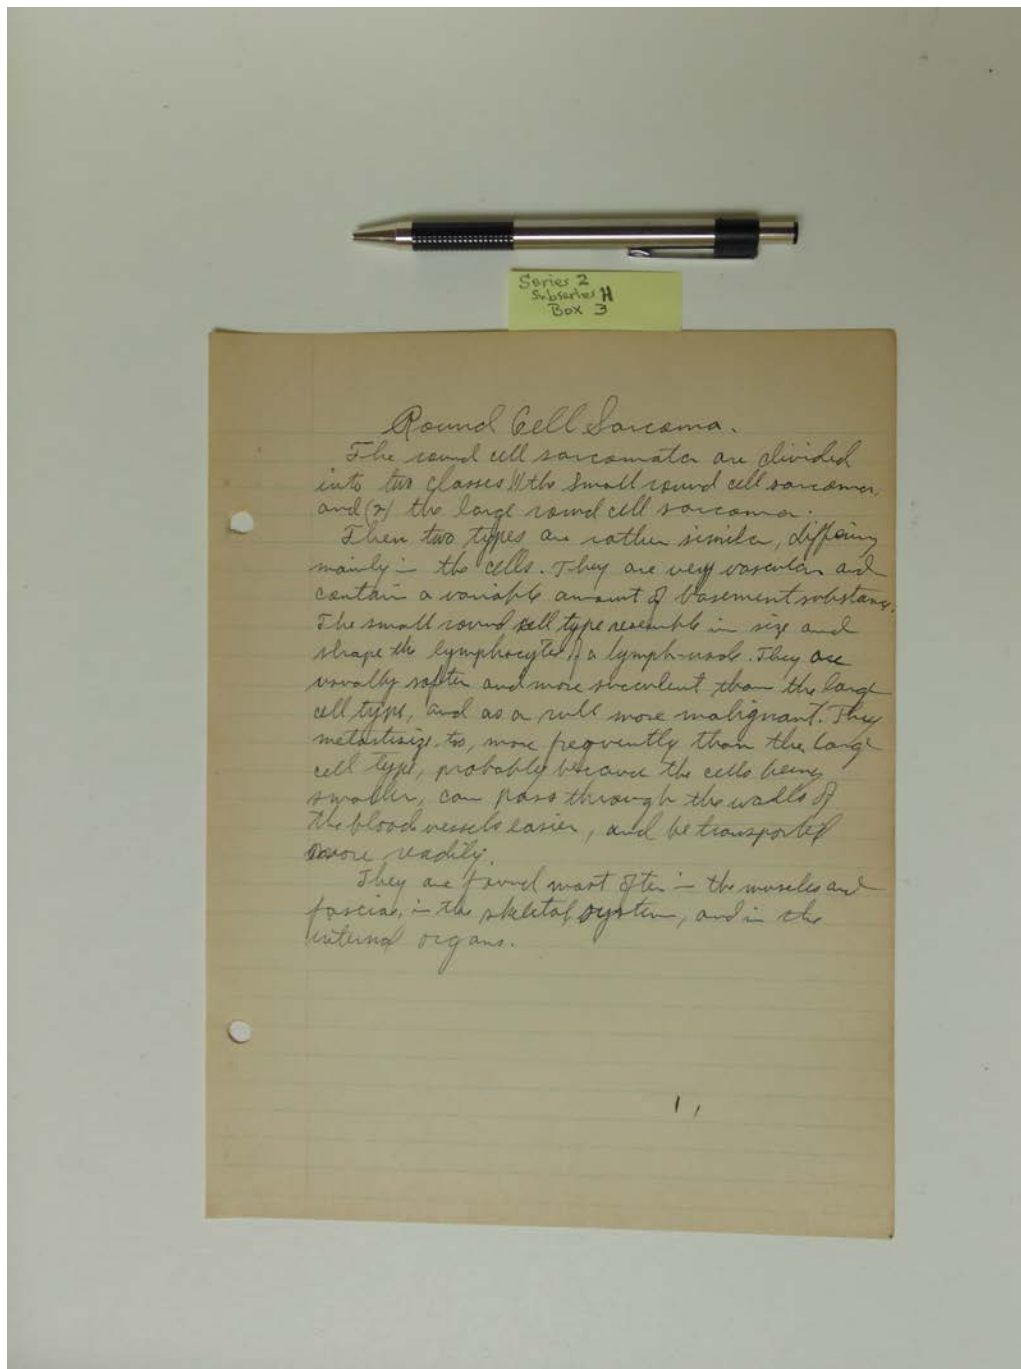 Series 2
Subseries H
Box 3
Round Cell Sarcoma.
The round cell sarcomata are divided
into two classes (1) the small round cell sarcoma,
and (2) the large round cell sarcoma.
These two types are rather similar, differing
mainly in the cells. They are very vascular and
contain a variable amount of basement substance.
The small round cell type resemble in size and
shape the lymphocytes of a lymph-node. They are
usually softer and more succulent than the large
cell type, and as a rule more malignant. They
metastisize, too, more frequently than the large
cell type, probably because the cells being
smaller, can pass through the walls of
the blood vessels easier, and be transported
more readily.
They are found most often in the muscles and
fasciae, in the skeletal system, and in the
internal organs.